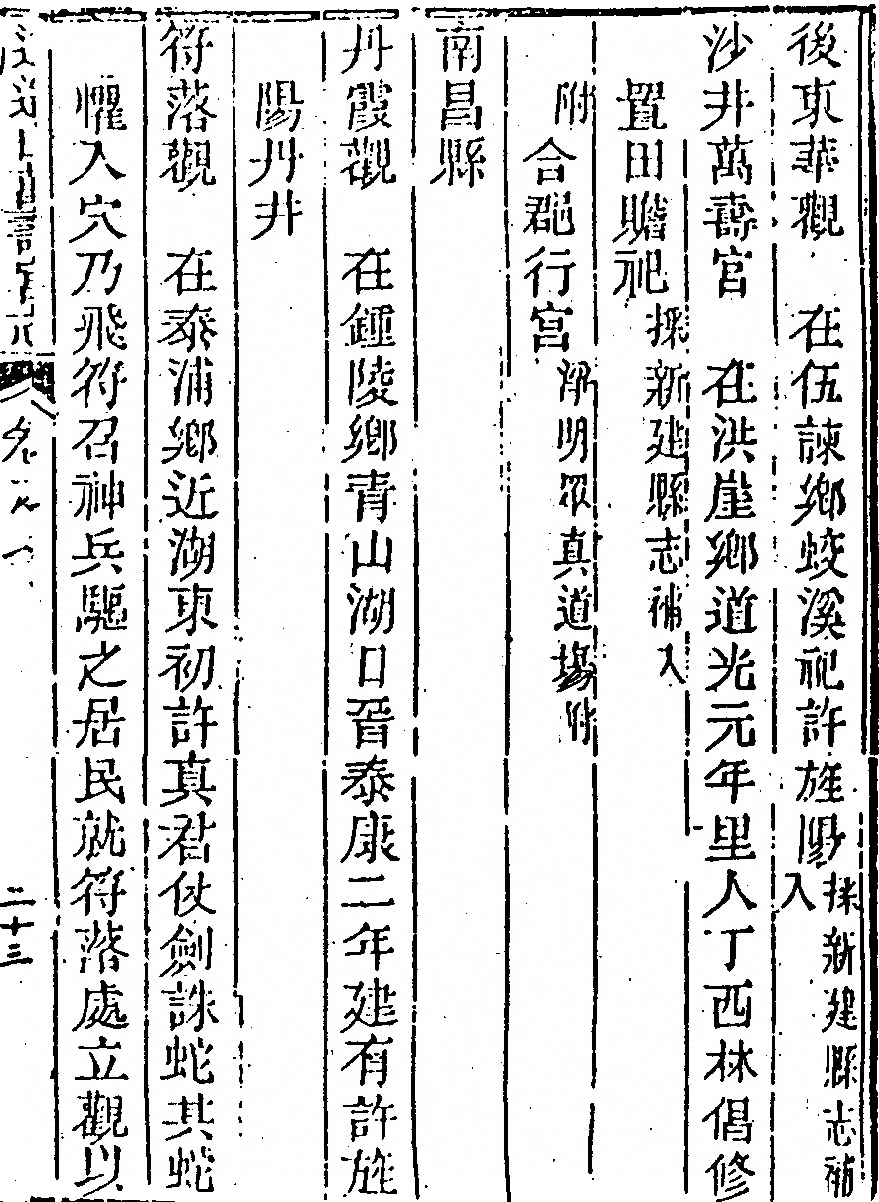 後東華觀　在伍諫鄉蛟溪祀許旌陽採新建縣志補入
沙井萬壽宮　在洪崖鄉道光元年里人丁西林倡修
置田贍祀採新建縣志補入
附合郡行宮淨明眾真道場附
南昌縣
丹霞觀　在鍾陵鄉青山湖口晉泰康二年建有許旌
陽丹井
符落觀　在泰浦鄉近湖東初許真君仗劍誅蛇其蛇
懼入穴乃飛符召神兵驅之居民就符落處立觀以
二十三